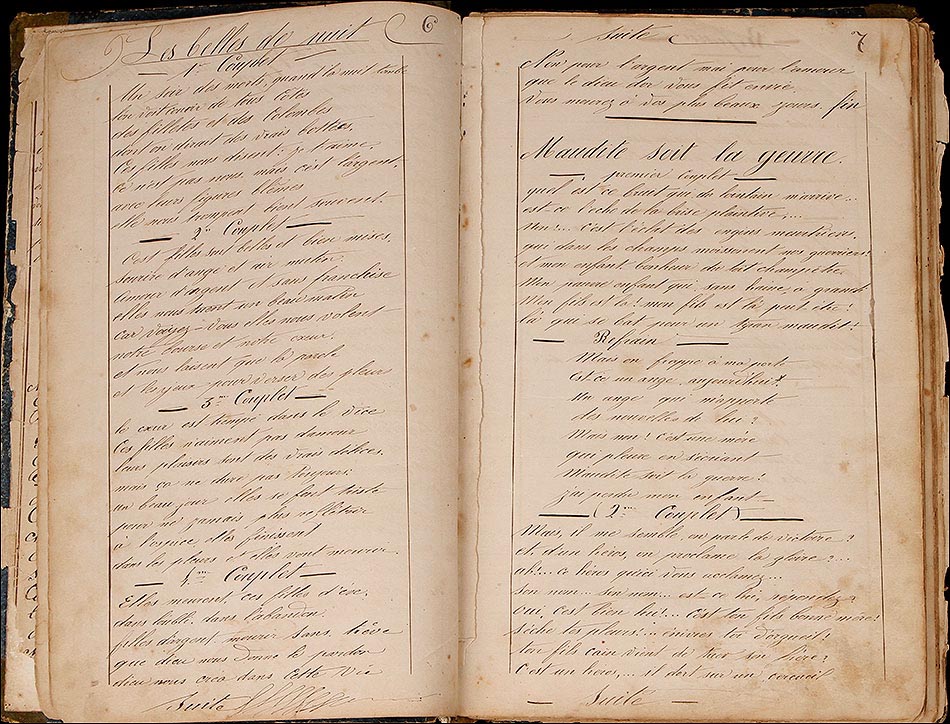 6
Les belles de nuit
1er Couplet
Un soir des morts quand la nuit tombe
l'on voit venir de tous côtes
des filletes et des Colombes
dont on dirait des vrais beltées.
Ces filles nous disent: je t'aime.
Ce n'est pas nous, mais c'est l'argent.
avec leurs figures blêmes
elle nous trompent bient souvent.
2me Couplet
C'est filles sont belles et bien mises.
sourire d'ange et air mutin
l'amour d'argent et sans franchise
elles nous tuent un beau matin
car voyez-vous elles nous volent
notre bourse et notre cœur.
et nous laissent que la parole
et les yeux pour verser des pleurs
3me Couplet
le cœur est trempé dans le vice
Ces filles n'aiment pas d'amour
leurs plaisirs sont des vrais délices.
mais ça ne dure pas toujours;
un beau jour elles se font triste
pour ne jamais plus
à elles finissent
dans les pleurs elles vont mourrir
4me Couplet
Elles meurent, ces filles d'ève.
dans l'abandon.
filles d'argent mourir sans trêve
que dieu nous donne le pardon
dieu nous crea dans cette Vie
Suite
Suite
7
Non pour l'argent mai pour l'amour
que le dieu d'or vous fit envie
Vous mourez à vos plus beaux jours. fin
Maudite soit la geurre.
premier couplet
quel est ce bruit qui du lointain m'arrive..
est-ce l'écho de la brise plaintive,...
Non!... C'est l'échot des engins meurtriers.
qui dans les champs moissonnent nos guerriers!
et mon enfant bonheur du toit champêtre
Mon pauvre enfant qui, sans haine, a grandi
Mon fils est là! mon fils est là peut être!
là qui se bat pour un tyran maudit!
Refrain
Mais on frappe à ma porte
est-ce un ange aujourd'hui?
Un ange qui m'apporte
des nouvelles de lui?
Mais non! C'est une mère
qui pleure en s'écriant
Maudite soit la guerre!
j'ai perdu mon enfant
(2me Couplet)
Mais, il me semble, on parle de victoire?
et d'un héros, on proclame la gloire?...
ah!... ce héros qu'ici vous acclamez...
Son nom... Son nom... est-ce lui répondez?
oui, c'est bien lui!... C'est ton fils bonne mère!
sèche tes pleurs!... énivres toi d'orgueil!
ton fils cain vient de tuer son frère?
C'est un heros,... il dort sur un cerceuil
Suite